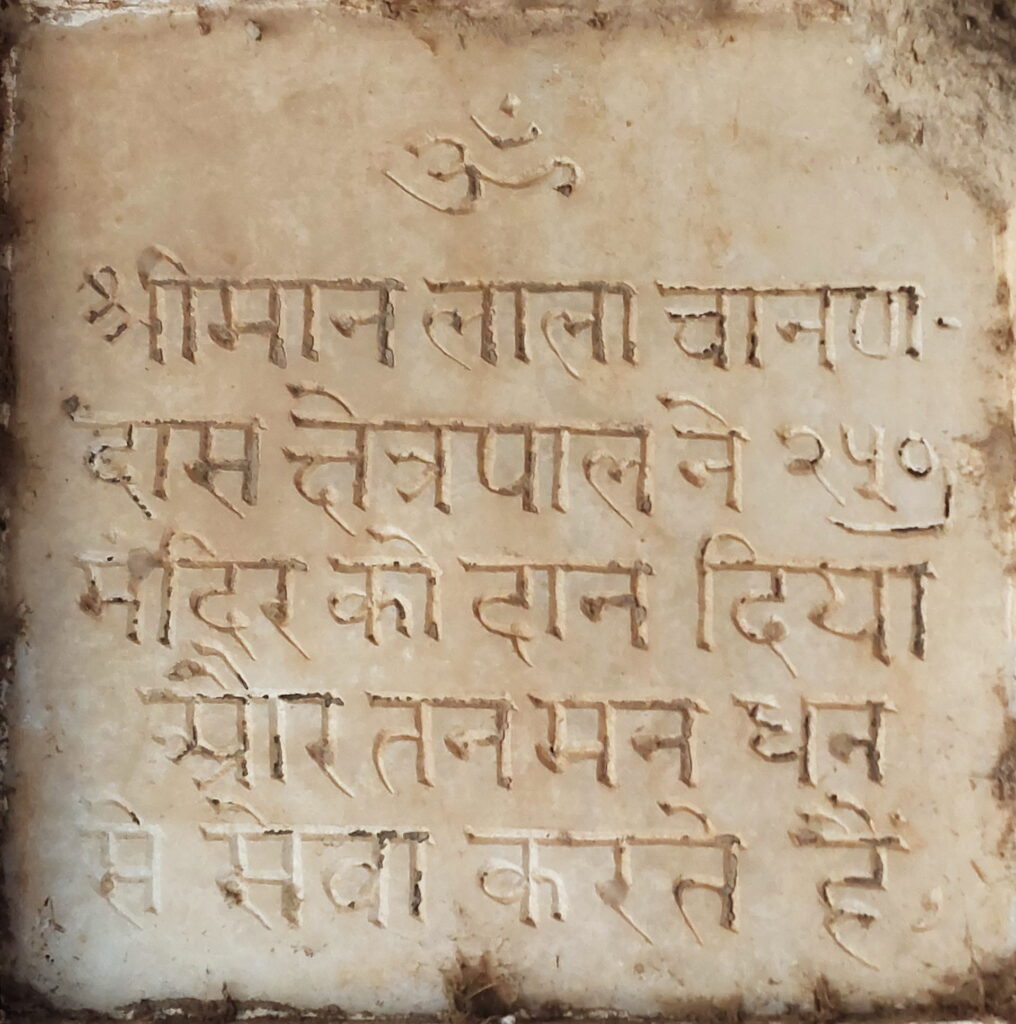 ॐ
श्रीमान लाला चानण-
दास क्षेत्रपाल ने २५०)
मंदिर को दान दिया
और तन मन धन
से सेवा करते हैं